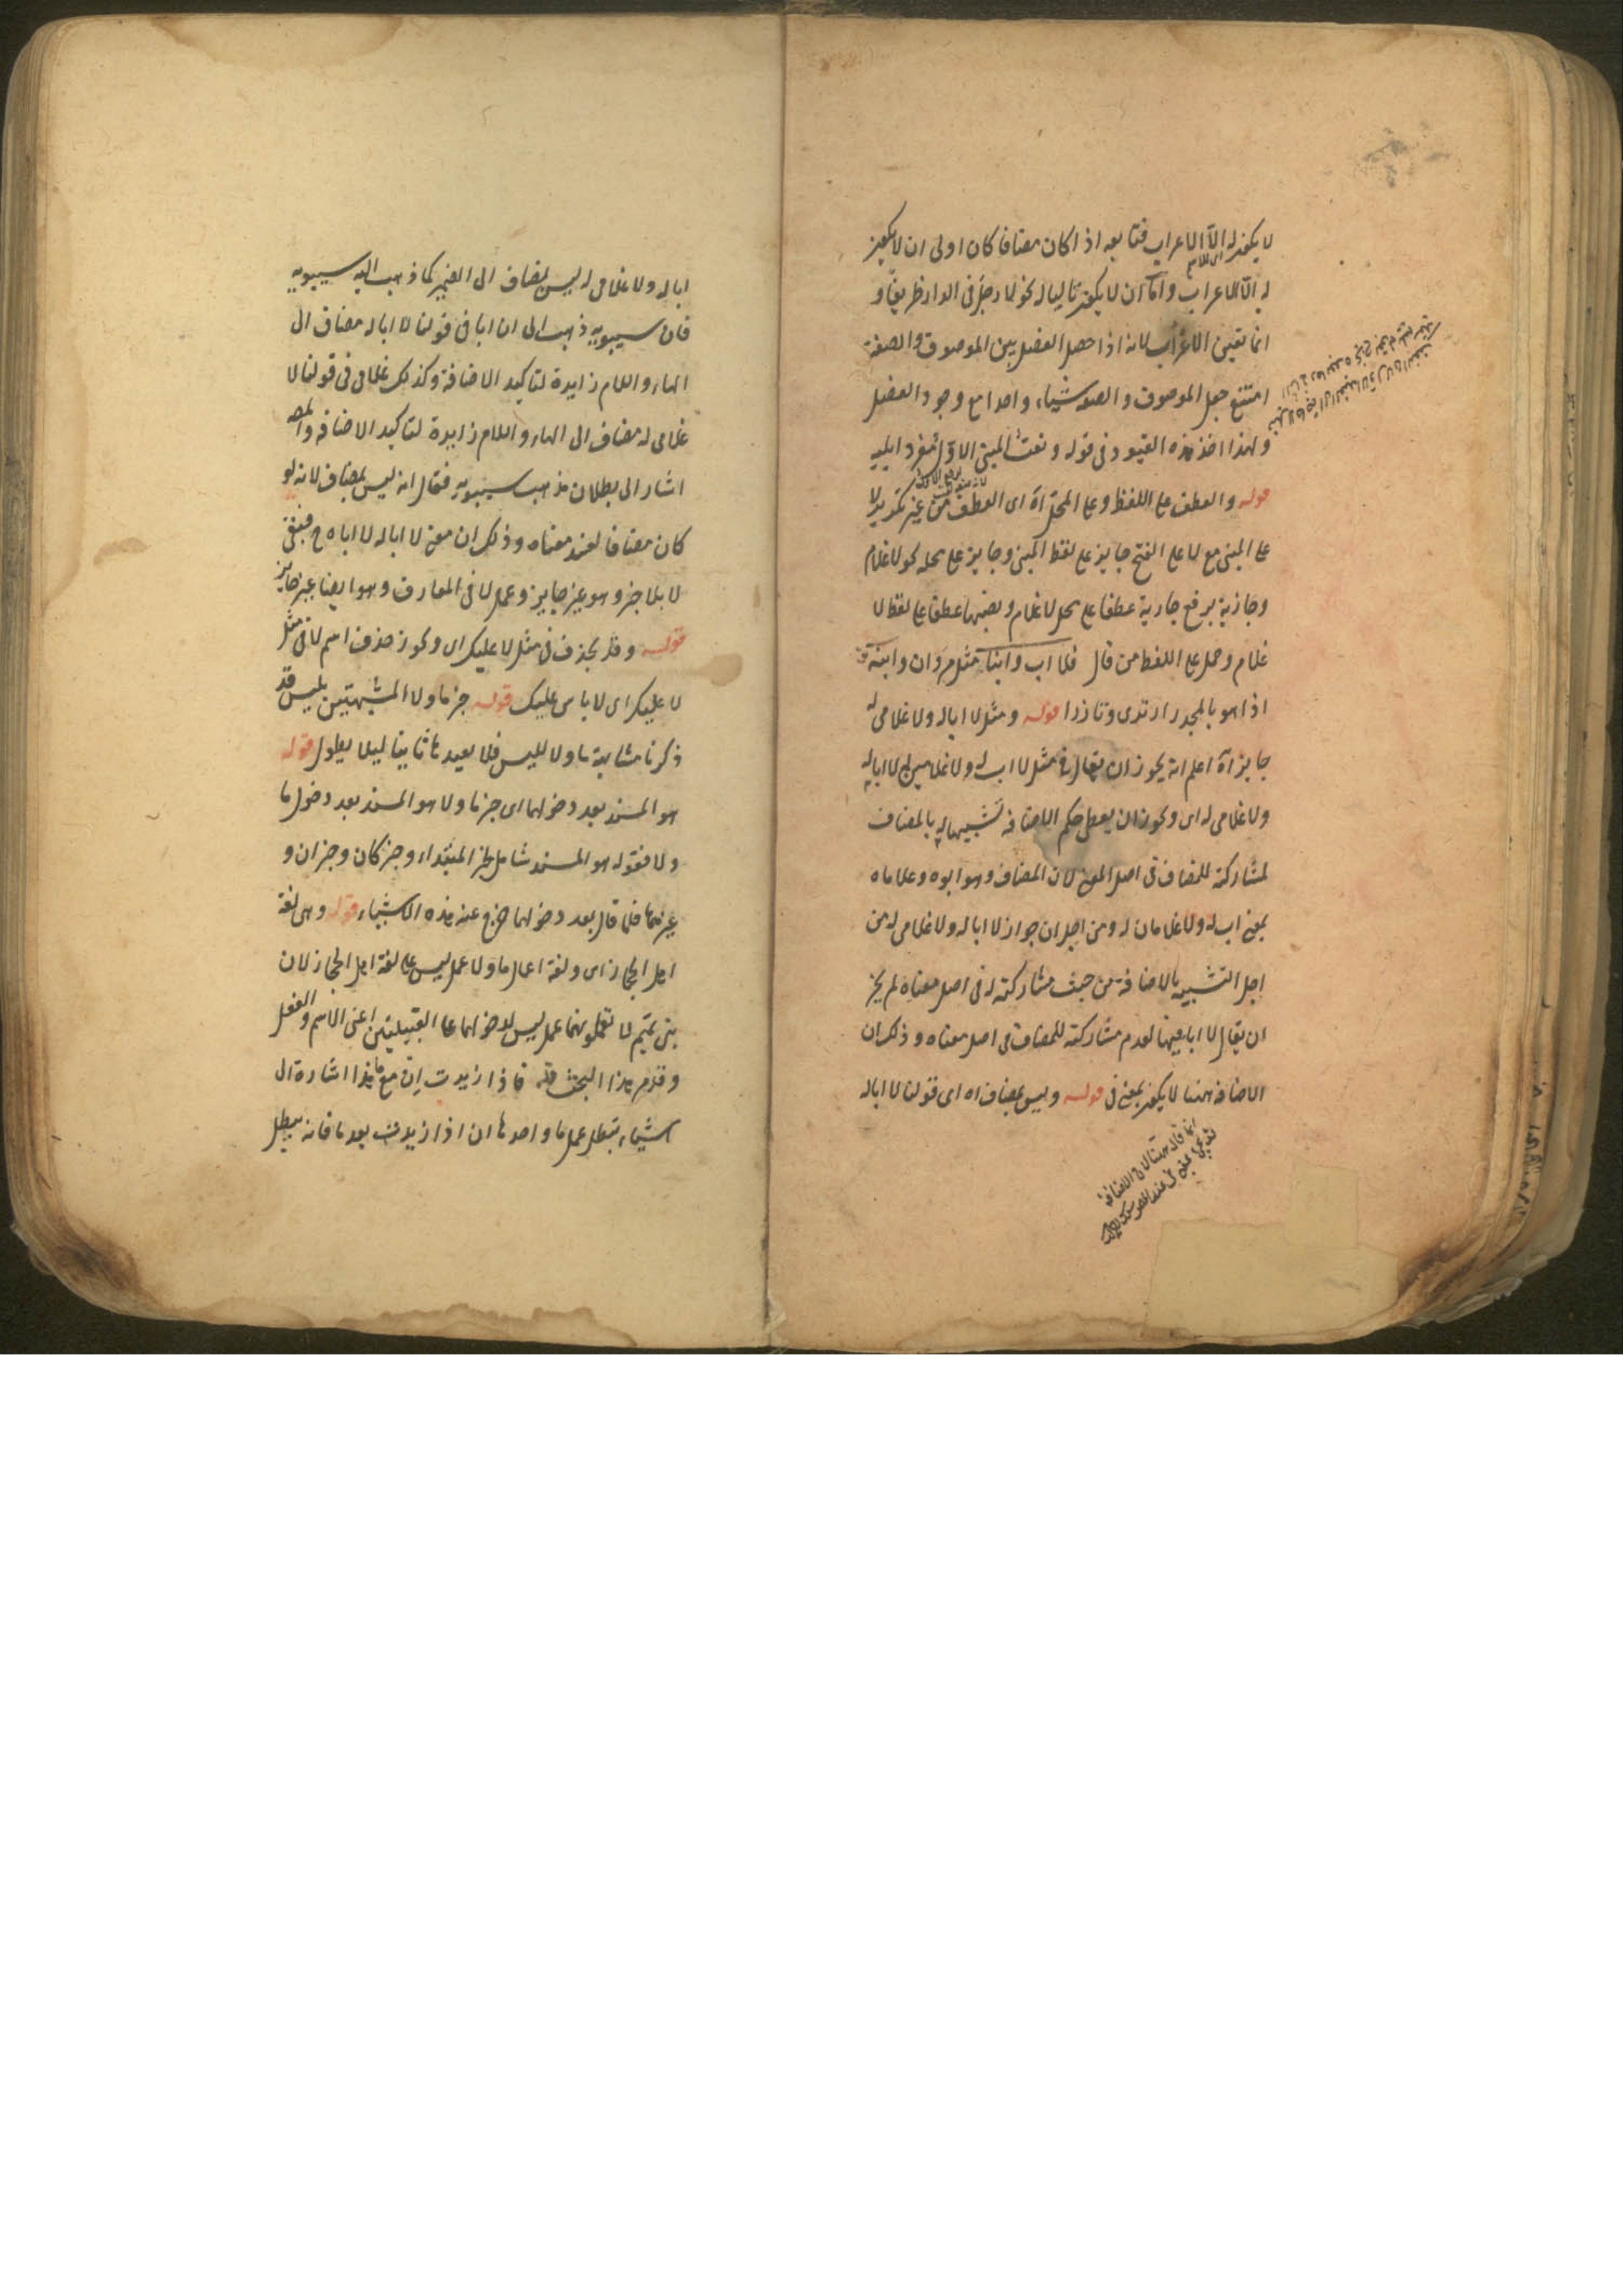 لا يكون له الا الاعراب فتابعه اذا كان مضافا كان اولى ان لا يكون
له الا الاعراب واما ان لا يكون تاليا له نحو لا رجل فى الدار ظريفا و
انما تعين الاعراب لانه اذا حصل الفصل بين الموصوف والصفة
امتنع جعل الموصوف والصفة شيئا واحدا مع وجود الفصل
ولهذا اخذ هذه القيود فى قوله ونعت المبنى الاول مفردا يليه
قوله والعطف على اللفظ وعلى المحل اه اى العطف من غير تكرير لا
على المبنى مع لا على الفتح جايز على لفظ المبنى وجايز على محله نحو لا غلام
وجارية برفع جارية عطفا على محل لا غلام وبنصبها عطفا على لفظ لا
غلام وحمل على اللفظ من قال فلا اب وابنا مثل مروان وابنه
اذا هو بالمجد ارتدى وتازرا قوله ومثل لا اباله ولا غلامى له
جايز اه اعلم انه يجوز ان يقال فى مثل لا اب له ولا غلامين له لا اباله
ولا غلامى له اى ويجوز ان يعطى حكم الاضافة تشبيها له بالمضاف
لمشاركته للمضاف فى اصل المعنى لان المضاف وهو ابوه وغلاماه
بمعنى اب له ولا غلامان له ومن اجل ان جواز لا اباله ولا غلامى له من
اجل التشبيه بالاضافة من حيث مشاركته له فى اصل معناه لم يجز
ان يقال لا ابا فيها لعدم مشاركته للمضاف فى اصل معناه وذلك ان
الاضافة ههنا لا يكون بمعنى فى قوله وليس بمضاف اه اى قولنا لا اباله
انما قال ههنا لان الاضافة
اباله ولا غلامى له ليس بمضاف الى الضمير كما ذهب اليه سيبويه
فان سيبويه ذهب الى ان ابا فى قولنا لا اباله مضاف الى
الهاء واللام زايدة لتاكيد الاضافة وكذلك غلامى فى قولنا لا
غلامى له مضاف الى الهاء واللام زايدة لتاكيد الاضافة والمص
اشار الى بطلان مذهب سيبويه فقال انه ليس بمضاف لانه لو
كان مضافا لفسد معناه وذلك ان معنى لا اباله لا اباه ح فبقى
لا بلا خبر وهو غير جايز وعمل لا فى المعارف وهو ايضا غير جايز
قوله وقد يحذف فى مثل لا عليك اى ويجوز حذف اسم لا فى مثل
لا عليك اى لا باس عليك قوله خبر ما ولا المشبهتين بليس قد
ذكرنا مشابهة ما ولا لليس فلا نعيدها ثانيا ليلا يطول قوله
هو المسند بعد دخولهما اى خبر ما ولا هو المسند بعد دخول ما
ولا فقوله هو المسند شامل لخبر المبتداء وخبر كان وخبر ان و
غيرها فلما قال بعد دخولهما خرج عنه هذه الاشياء قوله وهى لغة
اهل الحجاز اى ولغة اعمال ما ولا عمل ليس على لغة اهل الحجاز لان
بنى تميم لا تعملونهما عمل ليس لدخولهما على القبيلتين اعنى الاسم والفعل
وتقدم هذا البحث قوله فاذا زيدت ان مع ما هذا اشارة الى
اشياء تبطل عمل ما واحدها ان اذا زيدت بعد ما فانه يبطل